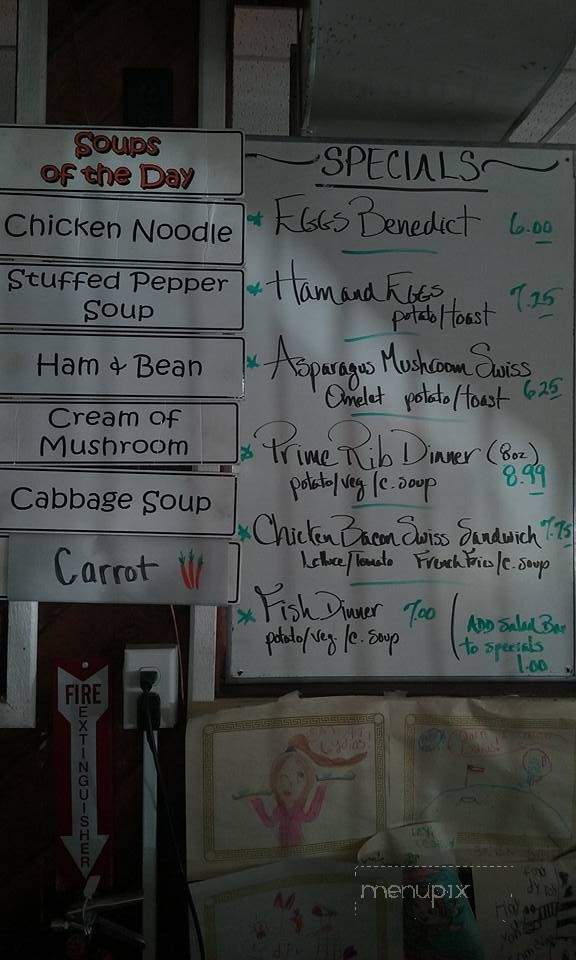 Soups
of the Day
Chicken Noodle
Stuffed Pepper
Soup
Ham & Bean
Cream of
Mushroom
Cabbage Soup
Carrot
SPECIALS
* EGGS Benedict 6.00
* Ham and EGGS 7.25
potato/toast
* Asparagus Mushroom Swiss
Omelet potato/toast 6.25
* Prime Rib Dinner (8oz)
potato/veg/c.soup 8.99
* Chicken Bacon Swiss Sandwich 7.75
Lettuce/Tomato French Fries/c.soup
* Fish Dinner 7.00
potato/veg./c.soup
ADD Salad Bar
to specials
1.00
FIRE
EXTINGUISHER
menupix